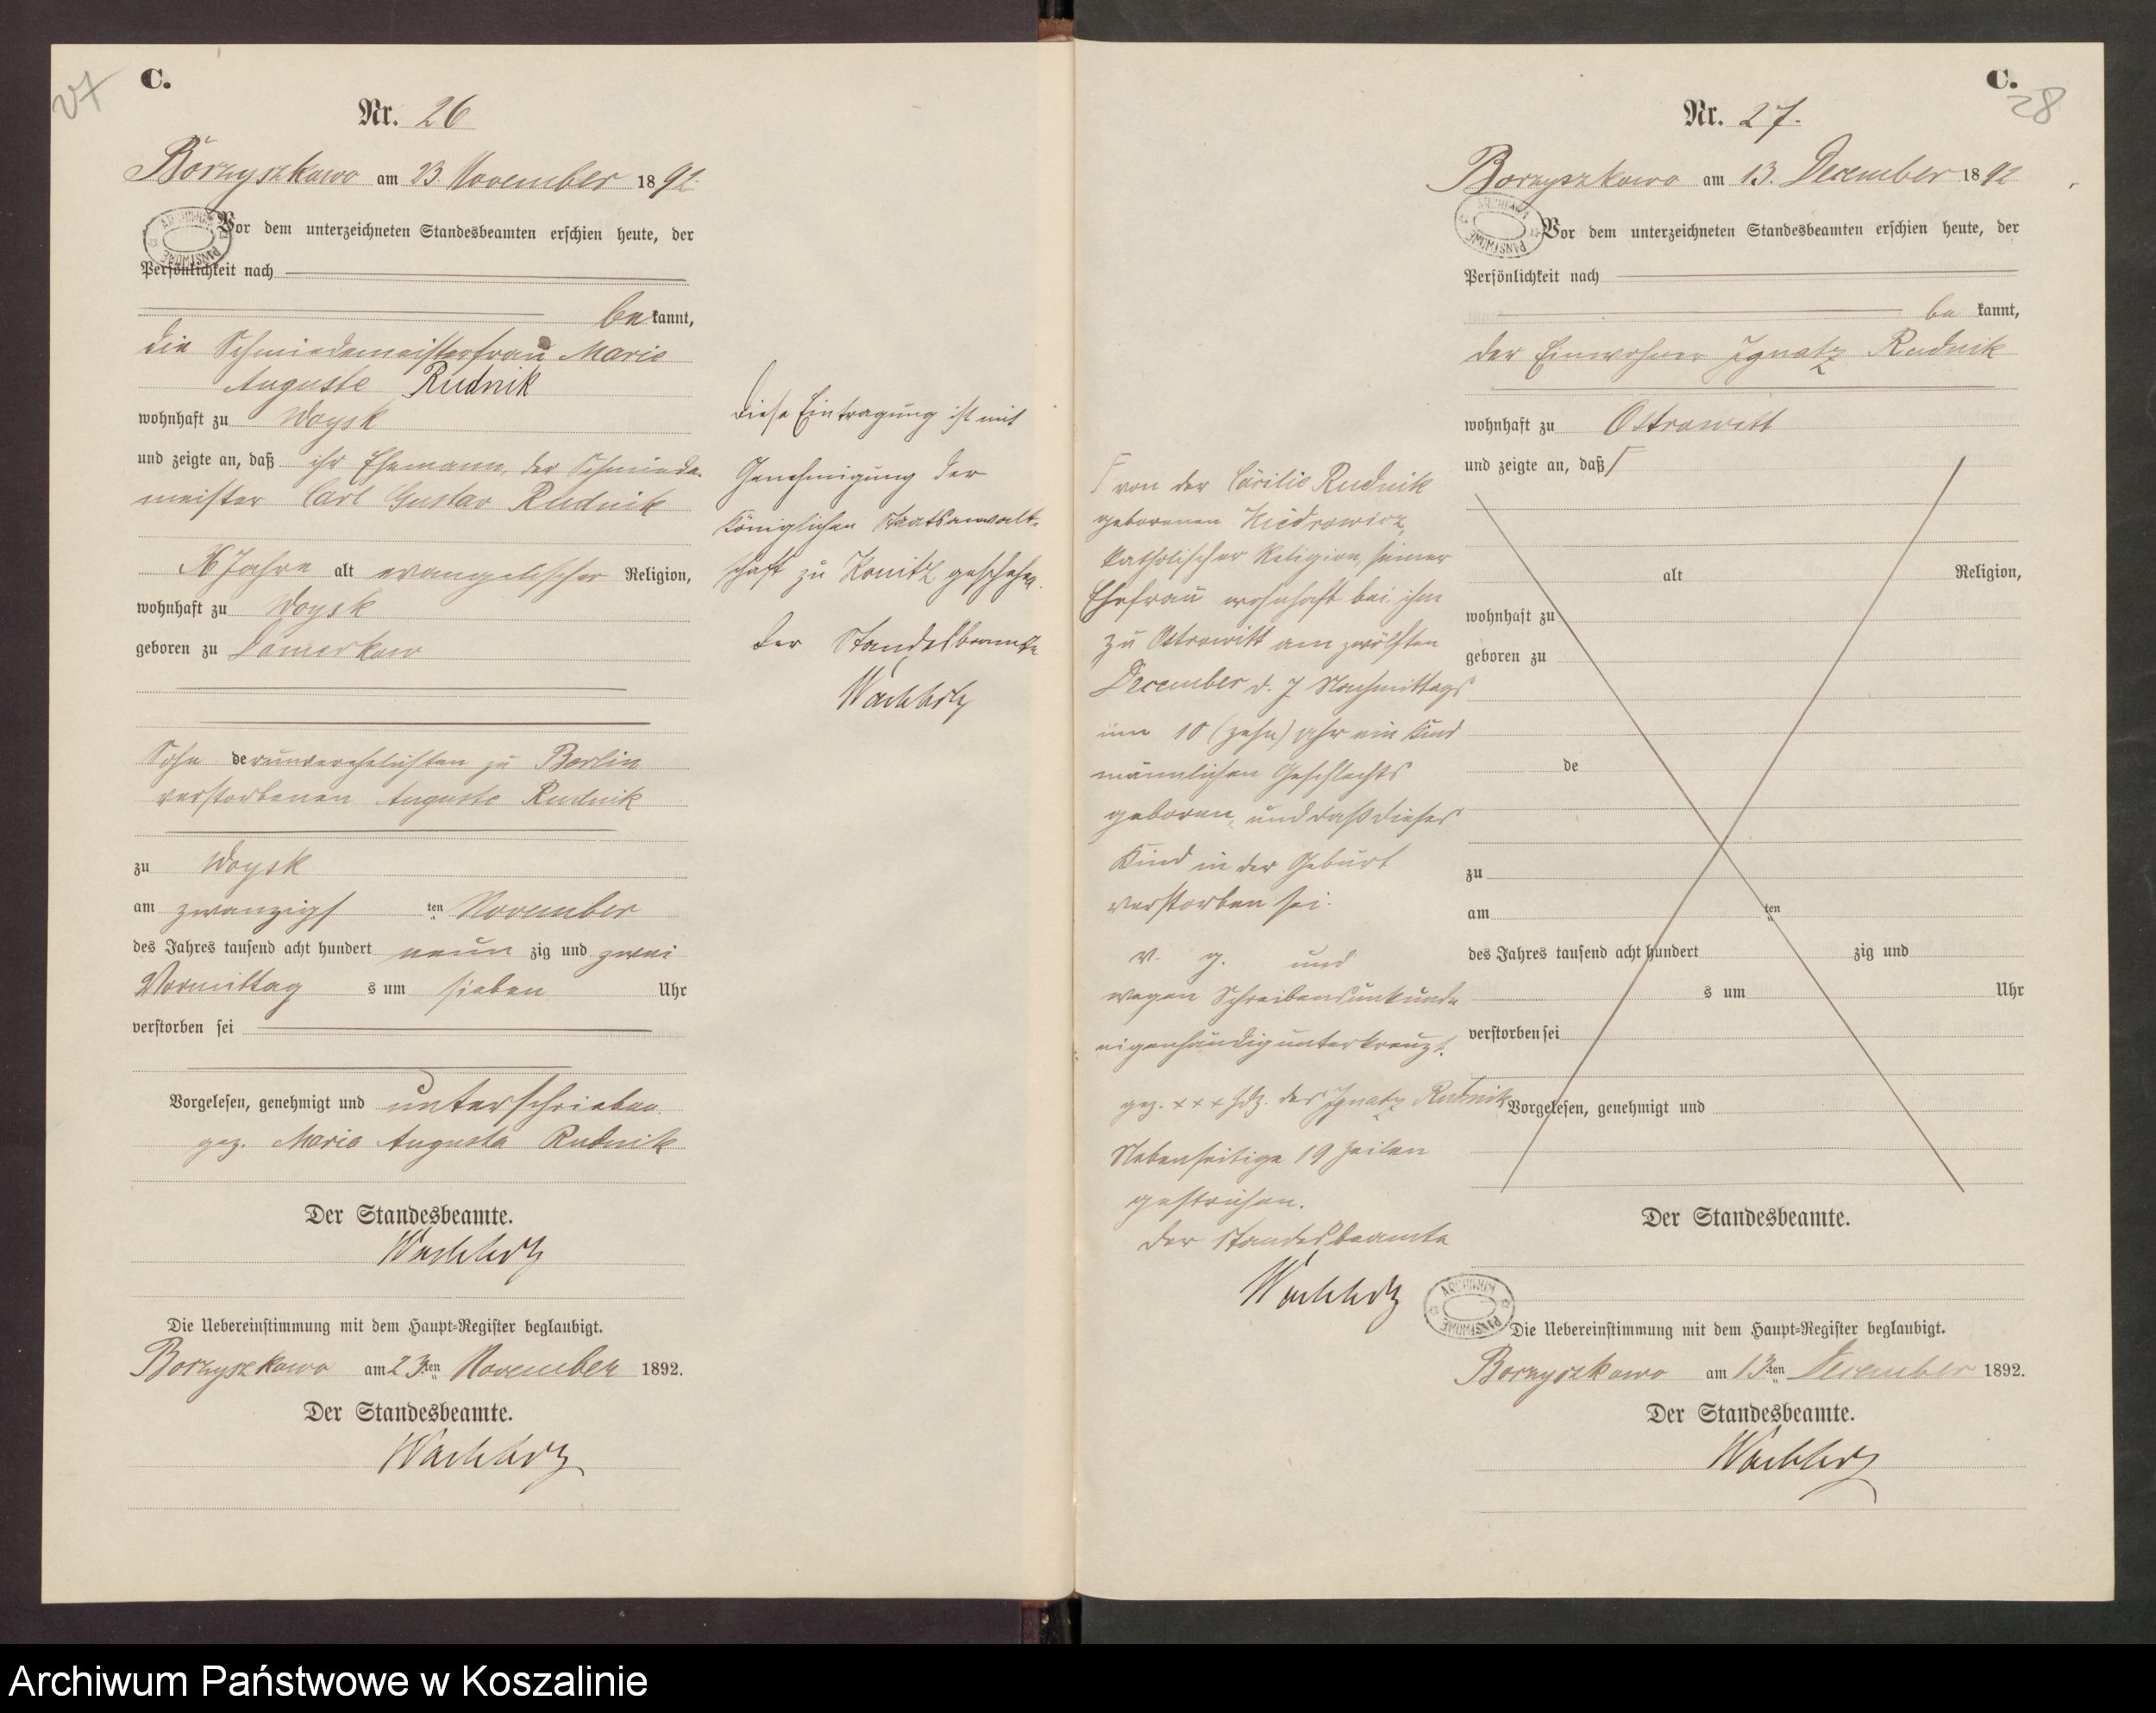 27
C.
Nr. 26
Borzyszkowo am 23. November 1892.
Vor dem unterzeichneten Standesbeamten erschien heute, der
Persönlichkeit nach
bekannt,
die Schmiedemeisterfrau Marie
Auguste Rudnik
wohnhaft zu Woysk
und zeigte an, daß ihr Ehemann, der Schmiede-
meister Carl Gustav Rudnik
Jahre alt evangelischer Religion,
wohnhaft zu Woysk
geboren zu Damerkow
Sohn der unverehelichten zu Berlin
verstorbenen Auguste Rudnik
zu Woysk
am zwanzigsten November
des Jahres tausend acht hundert neunzig und zwei
Vormittags um sieben Uhr
verstorben sei
Vorgelesen, genehmigt und unterschrieben
gez. Marie Auguste Rudnik
Der Standesbeamte.
Wachholz
Die Uebereinstimmung mit dem Haupt-Register beglaubigt.
Borzyszkowo am 23ten November 1892.
Der Standesbeamte.
Wachholz
Diese Eintragung ist mit
Genehmigung der
Königlichen Staatsanwalt-
schaft zu Konitz geschehen.
Der Standesbeamte
Wachholz
C.
28
Nr. 27.
Borzyszkowo am 13. December 1892
Vor dem unterzeichneten Standesbeamten erschien heute, der
Persönlichkeit nach
bekannt,
der Einwohner Ignatz Rudnik
wohnhaft zu Ostrowitt
und zeigte an, daß
von der Cäcilie Rudnik
geborenen
katholischer Religion, seiner
Ehefrau wohnhaft bei ihm
zu Ostrowitt am zwölften
December d. J. Nachmittags
um 10 (zehn) Uhr ein Kind
männlichen Geschlechts
geboren, und daß dieses
Kind in der Geburt
verstorben sei.
v. g. und
wegen Schreibensunkunde
eigenhändig unterkreuzt.
gez. +++ Hdz. des Ignatz Rudnik
Nebenseitige 19 Zeilen
gestrichen.
Der Standesbeamte
Wachholz
alt Religion,
wohnhaft zu
geboren zu
de
zu
am ten
des Jahres tausend acht hundert zig und
s um Uhr
verstorben sei
Vorgelesen, genehmigt und
Der Standesbeamte.
Die Uebereinstimmung mit dem Haupt-Register beglaubigt.
Borzyszkowo am 13ten December 1892.
Der Standesbeamte.
Wachholz
ARCHIWUM PAŃSTWOWE
Archiwum Państwowe w Koszalinie